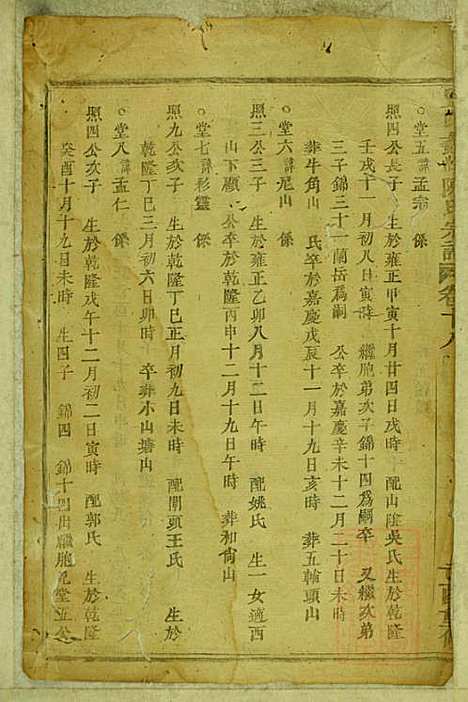 ○堂五諱孟宗 係
照四公長子 生於雍正甲寅十月廿四日戌時 配山陰吳氏生於乾隆
壬戌十一月初八日寅時 繼胞弟次子錦十四為嗣卒 又繼次弟
三子錦三十一蘭岳為嗣 公卒於嘉慶辛未十二月二十日未時
葬牛角山 氏卒於嘉慶戊辰十一月十九日亥時 葬五輪頭山
○堂六諱尼山 係
照三公三子 生於雍正乙卯八月十二日午時 配姚氏 生一女適西
山下顧 公卒於乾隆丙申十二月十九日午時 葬和尙山
○堂七諱彩靈 係
照九公次子 生於乾隆丁巳正月初九日未時 配開頭王氏 生於
乾隆丁巳三月初六日卯時 卒葬木山塘山
○堂八諱孟仁 係
照四公次子 生於乾隆戊午十二月初二日寅時 配郭氏 生於乾隆
癸酉十月十九日未時 生四子 錦四 錦十四出繼胞兄堂五公
宗譜 卷十八